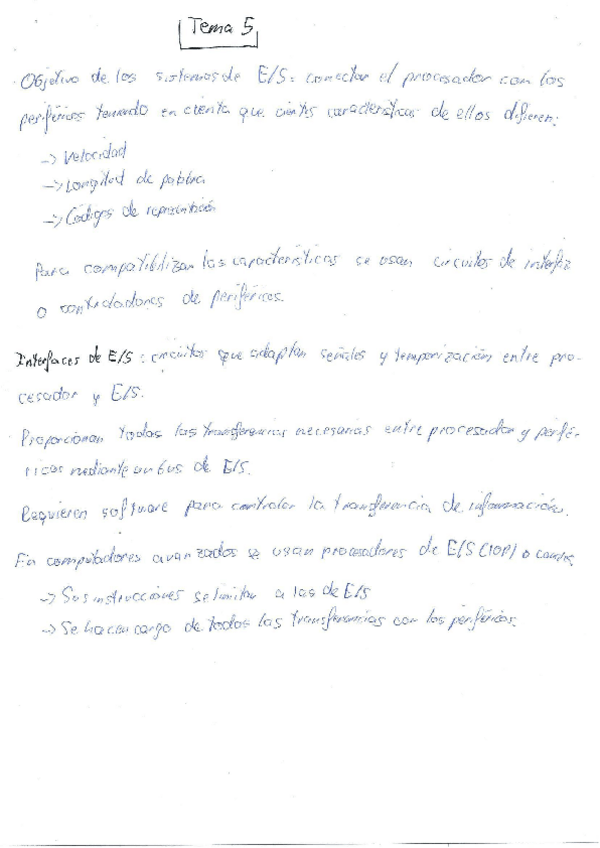 Tema 5
Objetivo de los sistemas de E/S: conectar el procesador con los
periféricos teniendo en cuenta que ciertas características de ellos difieren:
-> Velocidad
-> Longitud de palabra
-> Códigos de representación
Para compatibilizar las características se usan circuitos de interfaz
o controladores de periféricos.
Interfaces de E/S: circuitos que adaptan señales y temporización entre pro-
cesador y E/S.
Proporcionan todas las transferencias necesarias entre procesador y perifé-
ricos mediante un bus de E/S.
Requieren software para controlar la transferencia de información.
En computadores avanzados se usan procesadores de E/S (IOP) o
-> Sus instrucciones se limitan a las de E/S
-> Se hacen cargo de todas las transferencias con los periféricos.